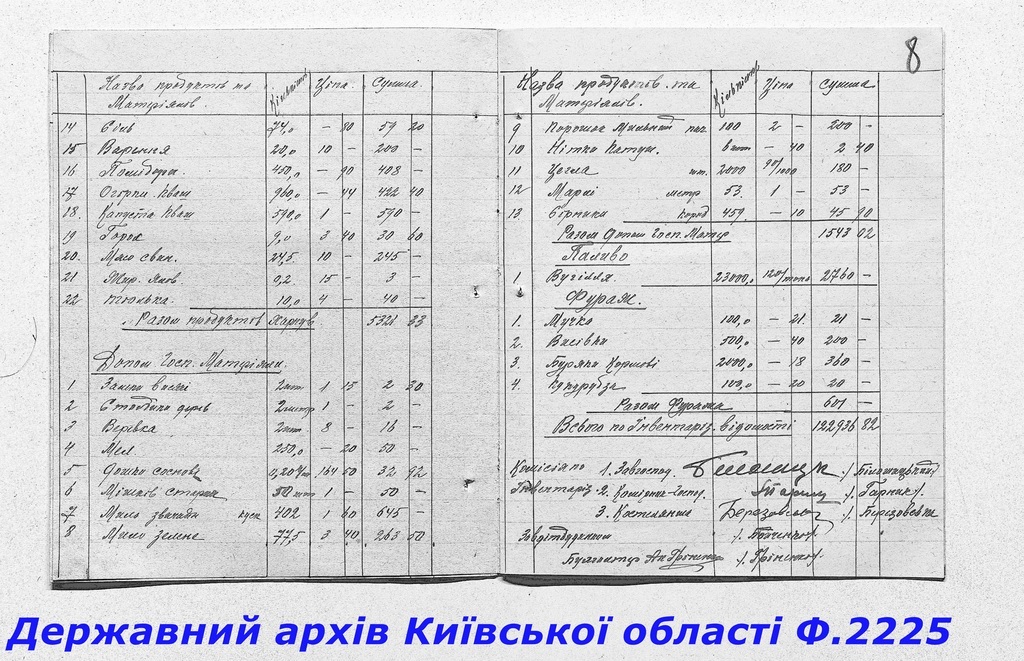 8
Назва продуктів по Кількість Ціна Сумма.
Матріялов.
14 Сіль 74,0 — 80 59 20
15 Варення 20,0 10 — 200 —
16 Помідори 450,0 — 90 408 —
17 Огірки кваш 960,0 — 44 422 40
18. Капуста кваш 590,0 1 — 590 —
19 Горох 9,0 3 40 30 60
20. Мясо свин. 24,5 10 — 245 —
21 Жир. 0,2 15 — 3 —
22 10,0 4 — 40 —
Разом продуктов Харчув 5321 33
Допом Госп. Матріяли.
1 Замки висячі 2шт 1 15 2 30
2 1 — 2 —
3 Верівка 2шт 8 — 16 —
4 Мел 250,0 — 20 50 —
5 Дошка соснова 164 50 32 92
6 Мішків старих 50 шт 1 — 50 —
7 Мило кусн 402 1 60 645 —
8 Мило зелене 77,5 3 40 263 50
Назва продуктов та Кількість Ціна Сумма
Матріялів.
9 Порошок Мильний пач. 100 2 — 200 —
10 Нітки Катуш. 6 шт — 40 2 40
11 Цегла шт. 2000 90/1000 180 —
12 Марлі метр 53. 1 — 53 —
13. Сірники короб 459. — 10 45 90
Разом Допом Госп. Матер 1543 02
Паливо
1 Вугілля 23000,0 120/тонна 2760 —
Фураж.
1. Мучка 100,0 — 21. 21 —
2. Висівки 500,0 — 40 200 —
3. Буряки Кормові 2000,0 — 18 360 —
4. Кукурудза 100,0 — 20 20 —
Разом Фуража 601 —
Всього по Інвентаріз. відомості 122936 82
Комісія по 1. Завгоспод /Білошицький/
Інвентаріз 2. /Гарник/.
3. Кастелянша Березовськ /. Березовська
Завдітбудинком
Бухгалтер /Гріненко/.
Державний архів Київської області Ф.2225